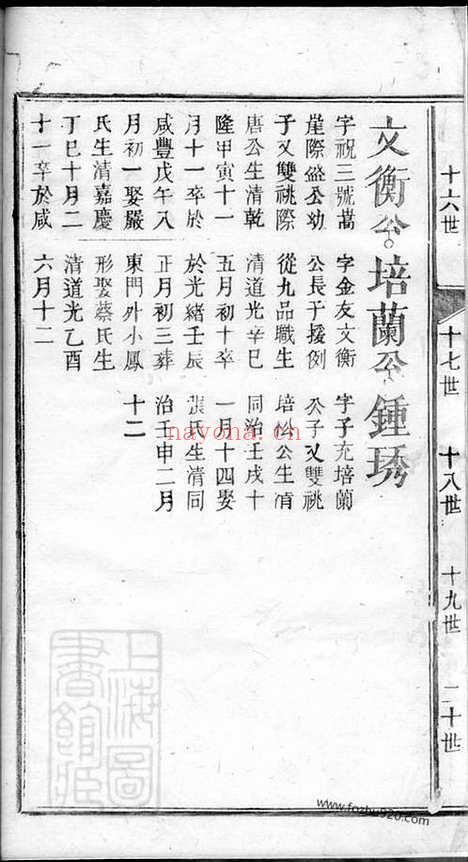 十六世
十七世
十八世
十九世
二十世
文衡公
字祝三號嵩
崖際盛公幼
子又雙祧際
唐公生清乾
隆甲寅十一
月十一卒於
咸豐戊午八
月初一娶嚴
氏生清嘉慶
丁巳十月二
十一卒於咸
培蘭公
字金友文衡
公長子援例
從九品職生
清道光辛巳
五月初十卒
於光緒壬辰
正月初三葬
東門外小鳳
形娶蔡氏生
清道光乙酉
六月十二
鍾琇
字子充培蘭
公子又雙祧
培松公生清
同治壬戌十
一月十四娶
張氏生清同
治壬申二月
十二
上海圖
書館藏
nayona.cn
www.fozhu920.com